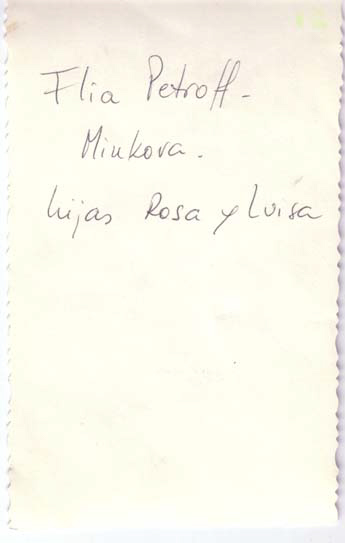 Flia Petroff -
Minkova.
hijas Rosa y Luisa